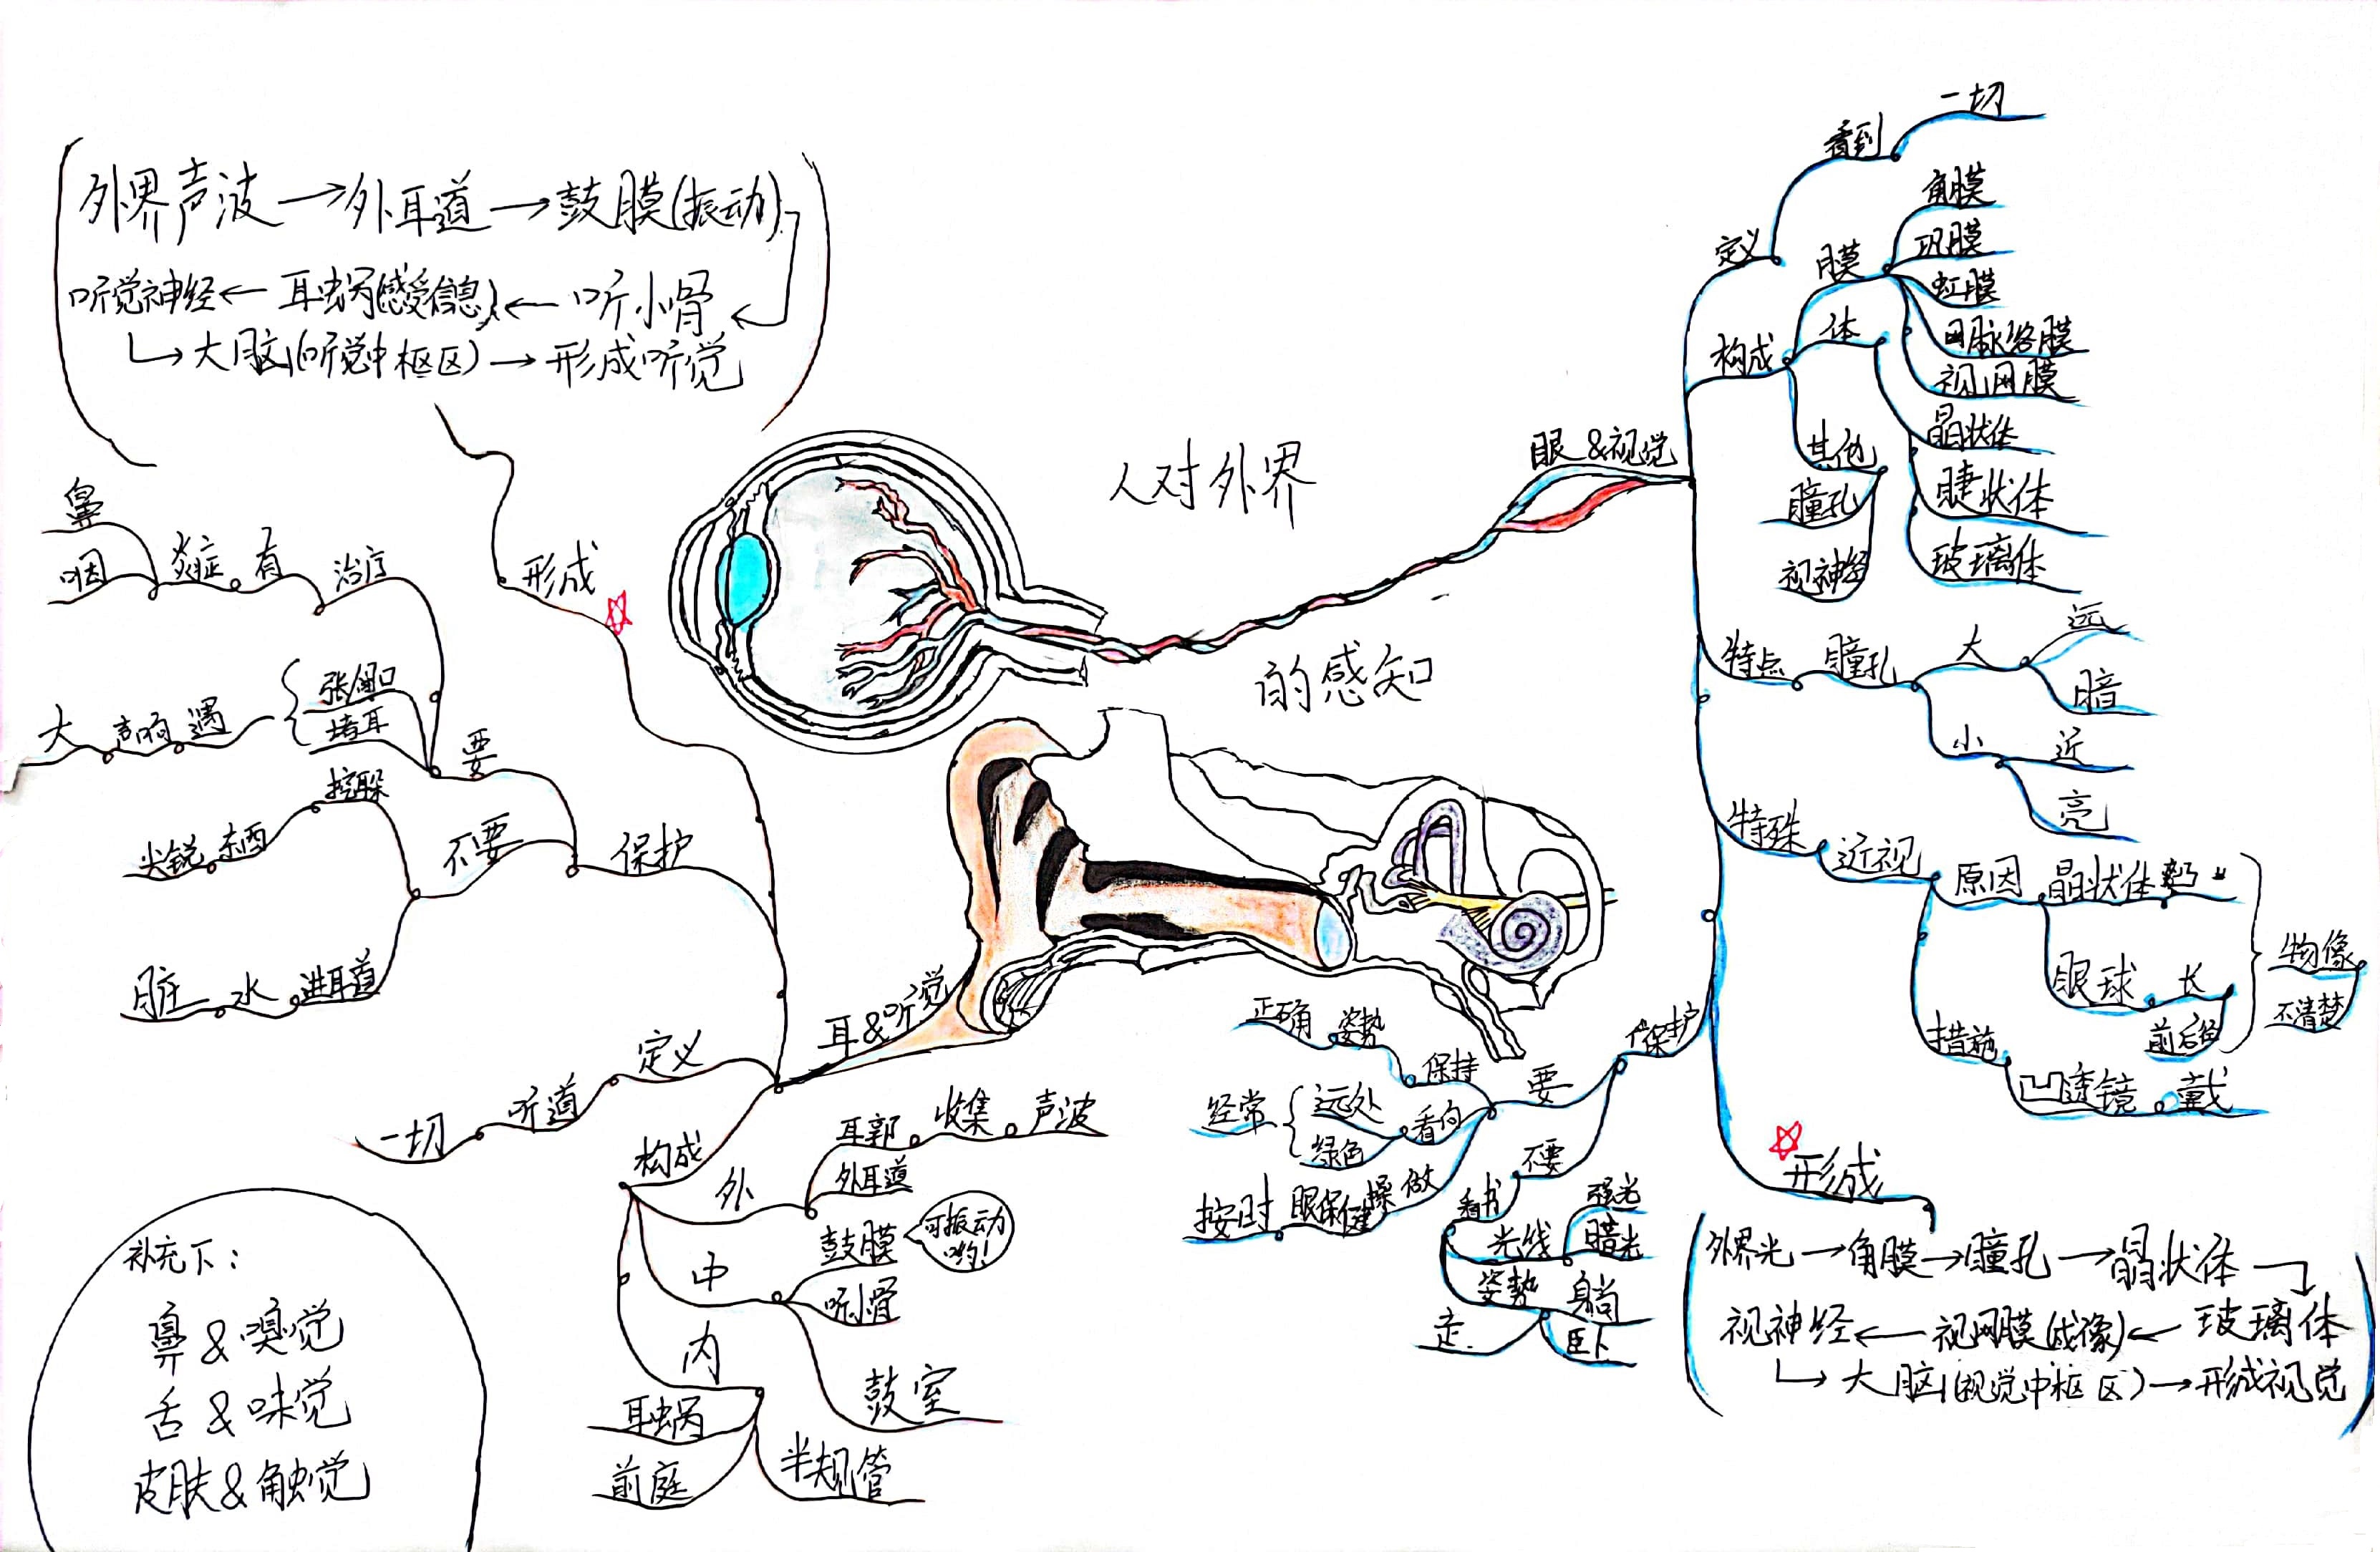 人对外界
的感知
眼&视觉
定义
看到
一切
构成
膜
角膜
巩膜
虹膜
脉络膜
视网膜
体
晶状体
睫状体
玻璃体
其他
瞳孔
视神经
特点
瞳孔
大
远
暗
小
近
亮
特殊
近视
原因
晶状体
眼球
长
前后径
物像
不清楚
措施
凹透镜
戴
保护
要
保持
姿势
正确
看向
远处
绿色
经常
做
眼保健操
按时
不要
看书
光线
强光
暗光
姿势
躺
卧
走
形成
外界光→角膜→瞳孔→晶状体
视神经←视网膜(成像)←玻璃体
→大脑(视觉中枢区)→形成视觉
耳&听觉
形成
外界声波→外耳道→鼓膜(振动)
听觉神经←耳蜗(感受信息)←听小骨
→大脑(听觉中枢区)→形成听觉
保护
要
治疗
有
炎症
鼻
咽
张闭口
堵耳
遇
声响
大
不要
挖耳朵
东西
尖锐
进耳道
水
脏
定义
听道
一切
构成
外
耳郭
收集
声波
外耳道
中
鼓膜
可振动
哟!
听小骨
鼓室
内
耳蜗
前庭
半规管
补充下:
鼻&嗅觉
舌&味觉
皮肤&触觉